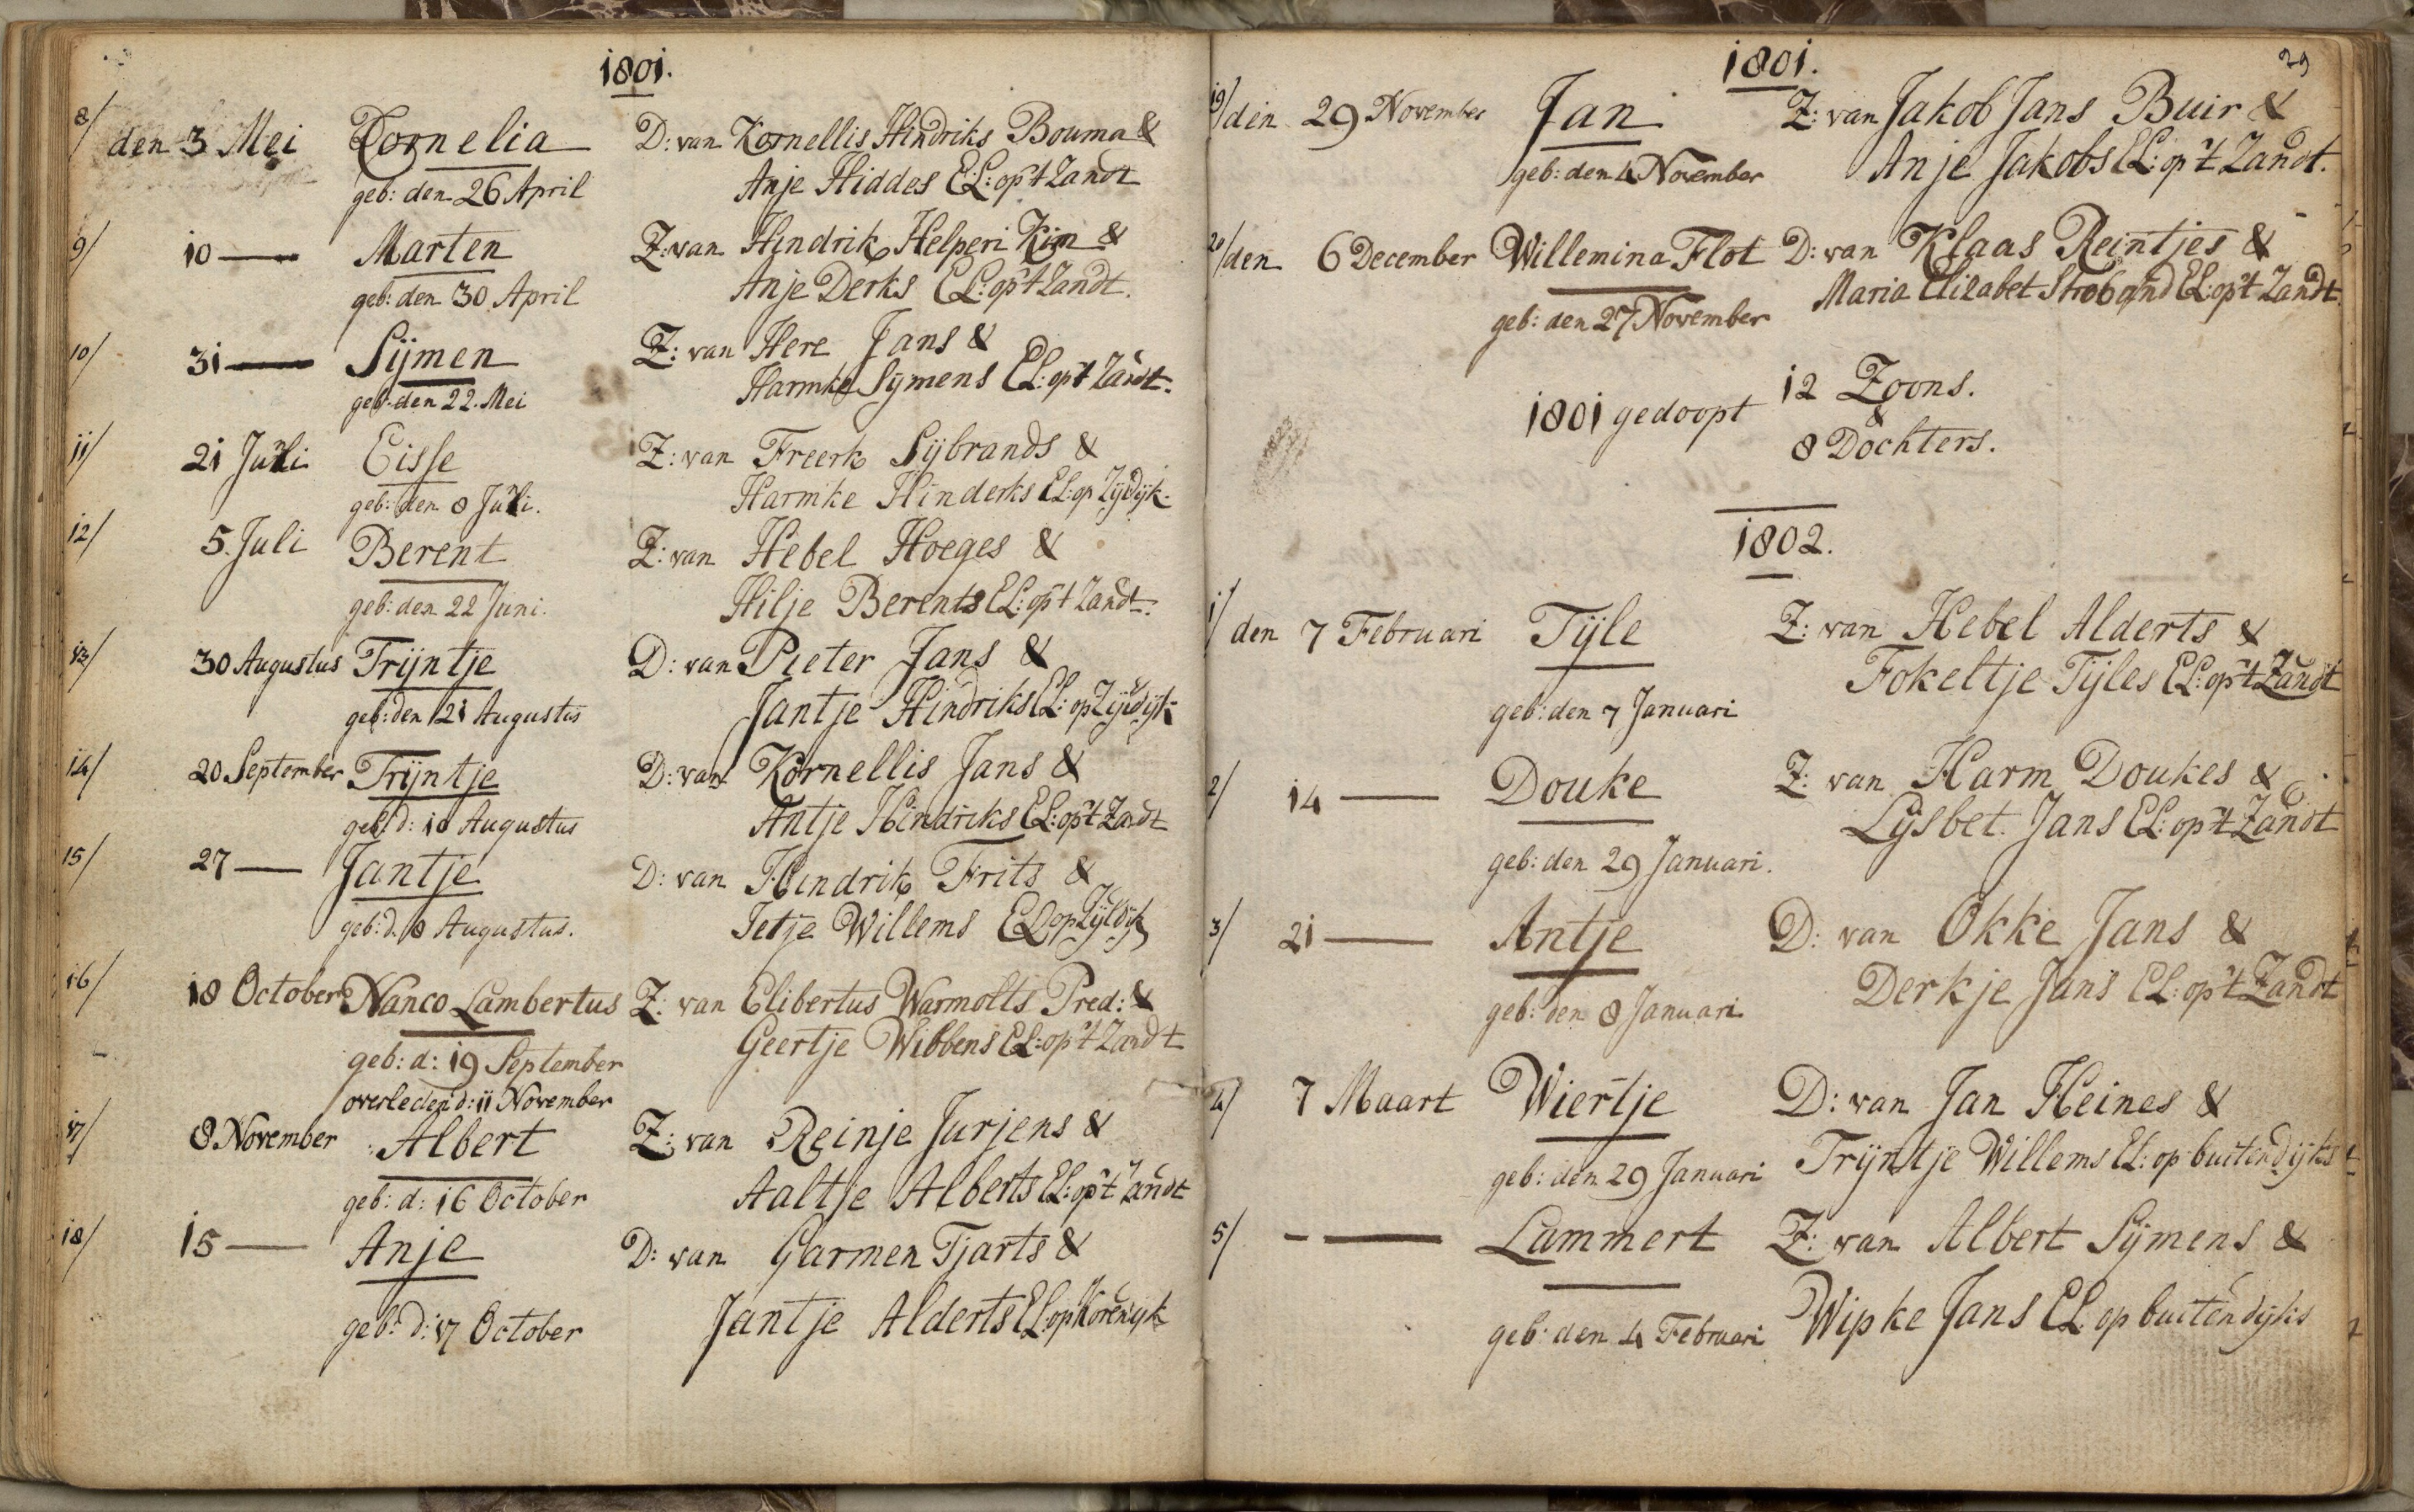 1801.
8/ den 3 Mei Kornelia D: van Kornellis Hindriks Bouma &
geb: den 26 April Anje Hiddes EL: op 't Zandt
9/ 10 — Marten Z: van Hindrik Helperi Kim &
geb: den 30 April Anje Derks EL: op 't Zandt.
10/ 31 — Sijmen Z: van Here Jans &
geb: den 22. Mei Harmke Sijmens EL: op 't Zandt.
11/ 21 Juni Eisse Z: van Freerk Sijbrands &
geb: den 8 Juni. Harmke Hinderks EL: op Zijldijk.
12/ 5. Juli Berent Z: van Hebel Hoeges &
geb: den 22 Juni. Hilje Berents EL: op 't Zandt.
13/ 30 Augustus Trijntje D: van Pieter Jans &
geb: den 21 Augustus Jantje Hindriks EL: op Zijldijk
14/ 20 September Trijntje D: van Kornellis Jans &
geb: d: 10 Augustus Antje Hindriks EL: op 't Zandt
15/ 27 — Jantje D: van Hindrik Frits &
geb: d. 8 Augustus. Jetje Willems EL op Zijldijk
16/ 18 October Nanco Lambertus Z: van Elibertus Warmolts Pred: &
geb: d: 19 September Geertje Wibbens EL: op 't Zandt
overleden d: 11 November
17/ 8 November Albert Z: van Reinje Jurjens &
geb: d: 16 October Aaltje Alberts EL: op 't Zandt
18/ 15 — Anje D: van Garmen Tjarts &
geb: d: 17 October Jantje Alderts EL: op Korenijk
1801. 29
19/ den 29 November Jan Z: van Jakob Jans Buir &
geb: den 4 November Anje Jakobs EL: op 't Zandt.
20/ den 6 December Willemina Flot D: van Klaas Reintjes &
geb: den 27 November Maria Elizabet Stroband EL: op 't Zandt.
12 Zoons.
1801 gedoopt &
8 Dochters.
1802.
1/ den 7 Februari Tijle Z: van Hebel Alderts &
geb: den 7 Januari Fokeltje Tijles EL: op 't Zandt
2/ 14 — Douke Z: van Harm Doukes &
geb: den 29 Januari. Lijsbet Jans EL: op 't Zandt
3/ 21 — Antje D: van Okke Jans &
geb: den 8 Januari Derkje Jans EL: op 't Zandt
4/ 7 Maart Wiertje D: van Jan Heines &
geb: den 29 Januari Trijntje Willems EL: op buitendijks
5/ - — Lammert Z: van Albert Sijmens &
geb: den 4 Februari Wipke Jans EL op buitendijks